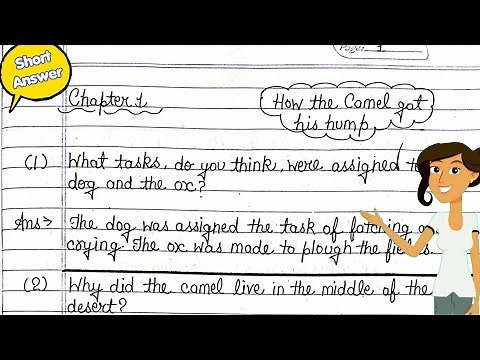 Short
Answer
Page: 1
Chapter 1
How the Camel got
his hump
(1) What tasks, do you think, were assigned
dog and the ox?
Ans⇒ The dog was assigned the task of fatching
crying. The ox was made to plough the fields.
(2) Why did the camel live in the middle of the
desert?